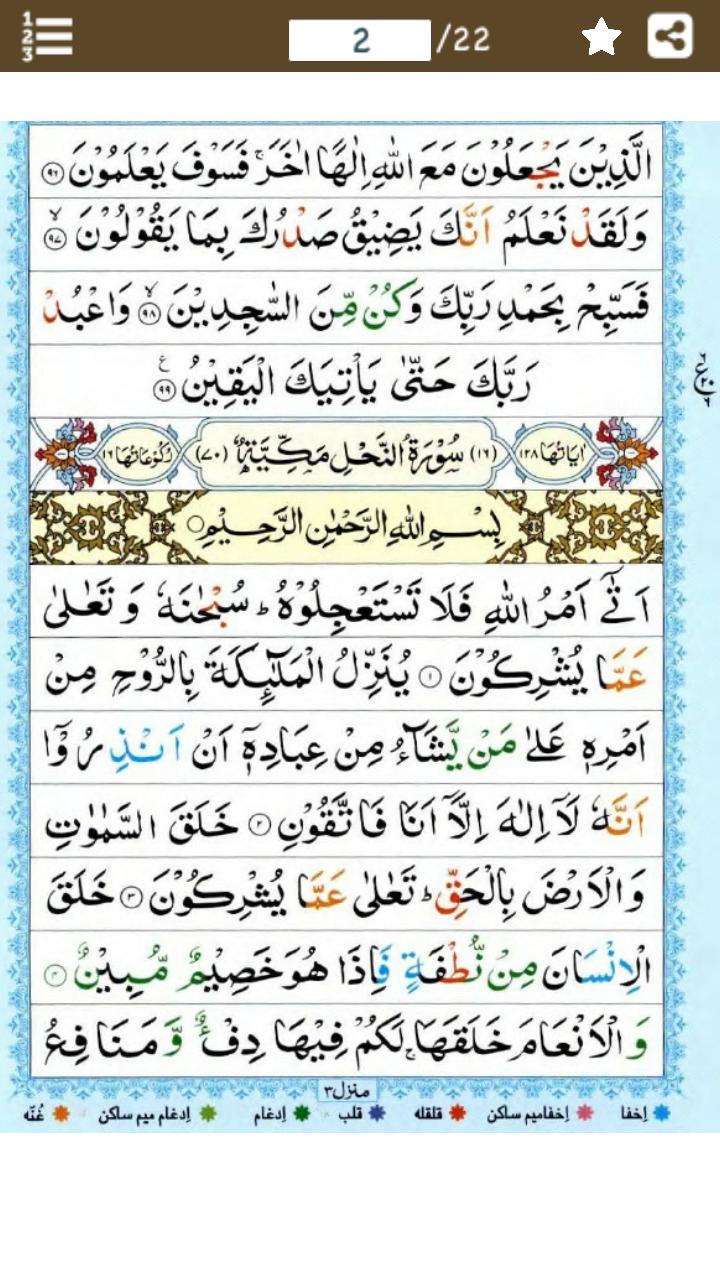 2 /22
الَّذِیْنَ یَجْعَلُوْنَ مَعَ اللّٰهِ اِلٰهًا اٰخَرَ ۚ فَسَوْفَ یَعْلَمُوْنَ ۝۹۶
وَلَقَدْ نَعْلَمُ اَنَّكَ یَضِیْقُ صَدْرُكَ بِمَا یَقُوْلُوْنَ ۙ۝۹۷
فَسَبِّحْ بِحَمْدِ رَبِّكَ وَكُنْ مِّنَ السّٰجِدِیْنَ ۙ۝۹۸ وَاعْبُدْ
رَبَّكَ حَتّٰی یَاْتِیَكَ الْیَقِیْنُ ۝۹۹ ع
اٰیَاتُهَا ۱۲۸ (۱۶) سُوْرَةُ النَّحْلِ مَكِّیَّةٌ (۷۰) رُكُوْعَاتُهَا ۱۶
بِسْمِ اللّٰهِ الرَّحْمٰنِ الرَّحِیْمِ
اَتٰۤی اَمْرُ اللّٰهِ فَلَا تَسْتَعْجِلُوْهُ ؕ سُبْحٰنَهٗ وَ تَعٰلٰی
عَمَّا یُشْرِكُوْنَ ۝۱ یُنَزِّلُ الْمَلٰٓئِكَةَ بِالرُّوْحِ مِنْ
اَمْرِهٖ عَلٰی مَنْ یَّشَآءُ مِنْ عِبَادِهٖۤ اَنْ اَنْذِرُوْۤا
اَنَّهٗ لَاۤ اِلٰهَ اِلَّاۤ اَنَا فَاتَّقُوْنِ ۝۲ خَلَقَ السَّمٰوٰتِ
وَالْاَرْضَ بِالْحَقِّ ؕ تَعٰلٰی عَمَّا یُشْرِكُوْنَ ۝۳ خَلَقَ
الْاِنْسَانَ مِنْ نُّطْفَةٍ فَاِذَا هُوَ خَصِیْمٌ مُّبِیْنٌ ۝۴
وَالْاَنْعَامَ خَلَقَهَا ۚ لَكُمْ فِیْهَا دِفْءٌ وَّ مَنَافِعُ
منزل۳
اِخفا اِخفامیم ساکن قلقله قلب اِدغام اِدغام میم ساکن غُنّه